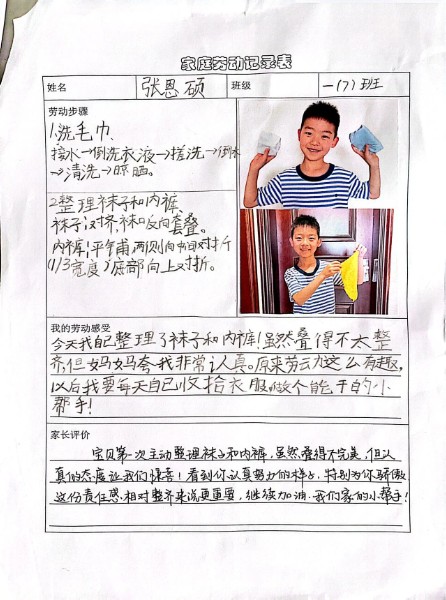 家庭劳动记录表
姓名 张恩硕 班级 一(7)班
劳动步骤
1.洗毛巾、
接水→倒洗衣液→搓洗→倒水
→清洗→晾晒。
2整理袜子和内裤
袜子:对齐,袜口反向套叠。
内裤:平铺,两侧向中间对折
(1/3宽度)底部向上对折。
我的劳动感受
今天我自己整理了袜子和内裤!虽然叠得不太整
齐,但妈妈夸我非常认真。原来劳动这么有趣,
以后我要每天自己收拾衣服,做个能干的小
帮手!
家长评价
宝贝第一次主动整理袜子和内裤,虽然叠得不完美,但认
真的态度让我们惊喜!看到你认真努力的样子,特别为你骄傲
这份责任感相对整齐来说更重要,继续加油,我们家的小帮手!